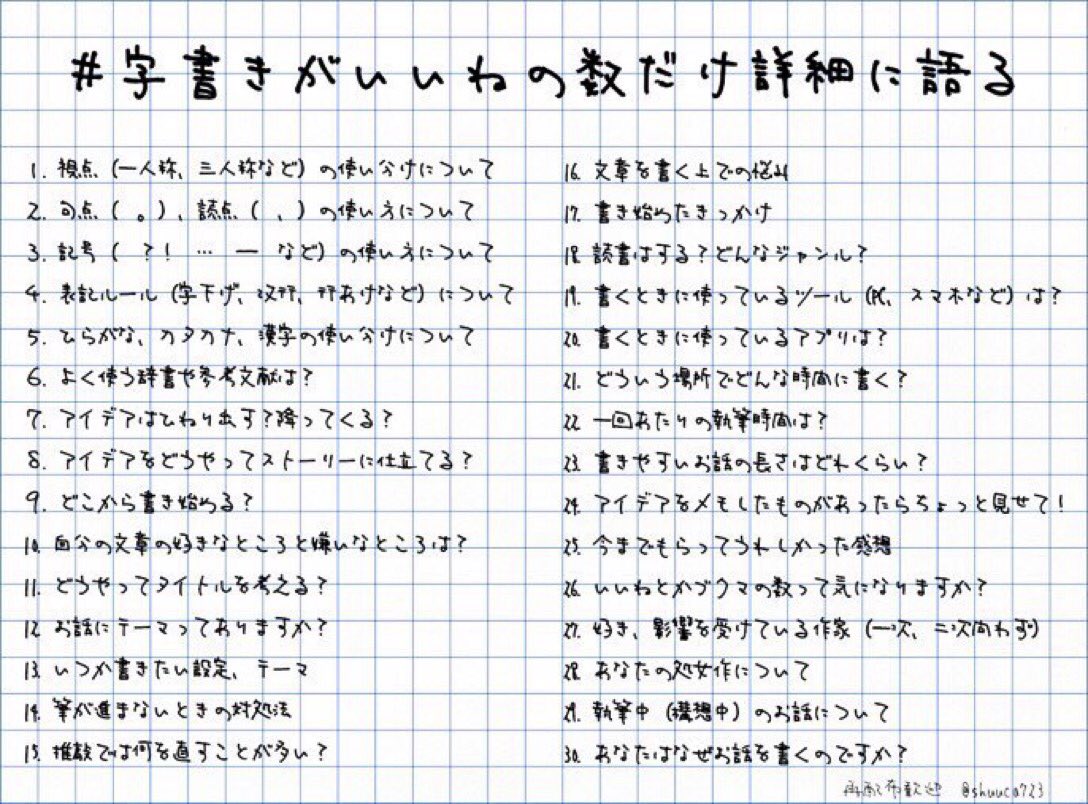 #字書きがいいねの数だけ詳細に語る
1. 視点（一人称、三人称など）の使い分けについて
2. 句点（。）、読点（、）の使い方について
3. 記号（ ?! … ― など）の使い方について
4. 表記ルール（字下げ、改行、行あけなど）について
5. ひらがな、カタカナ、漢字の使い分けについて
6. よく使う辞書や参考文献は?
7. アイデアはひねり出す?降ってくる?
8. アイデアをどうやってストーリーに仕立てる?
9. どこから書き始める?
10. 自分の文章の好きなところと嫌いなところは?
11. どうやってタイトルを考える?
12. お話にテーマってありますか?
13. いつか書きたい設定、テーマ
14. 筆が進まないときの対処法
15. 推敲では何を直すことが多い?
16. 文章を書く上での悩み
17. 書き始めたきっかけ
18. 読書はする?どんなジャンル?
19. 書くときに使っているツール（PC、スマホなど）は?
20. 書くときに使っているアプリは?
21. どういう場所でどんな時間に書く?
22. 一回あたりの執筆時間は?
23. 書きやすいお話の長さはどれくらい?
24. アイデアをメモしたものがあったらちょっと見せて!
25. 今までもらってうれしかった感想
26. いいねとかブクマの数って気になりますか?
27. 好き、影響を受けている作家（一次、二次問わず）
28. あなたの処女作について
29. 執筆中（構想中）のお話について
30. あなたはなぜお話を書くのですか?
再配布歓迎 @shuuca723